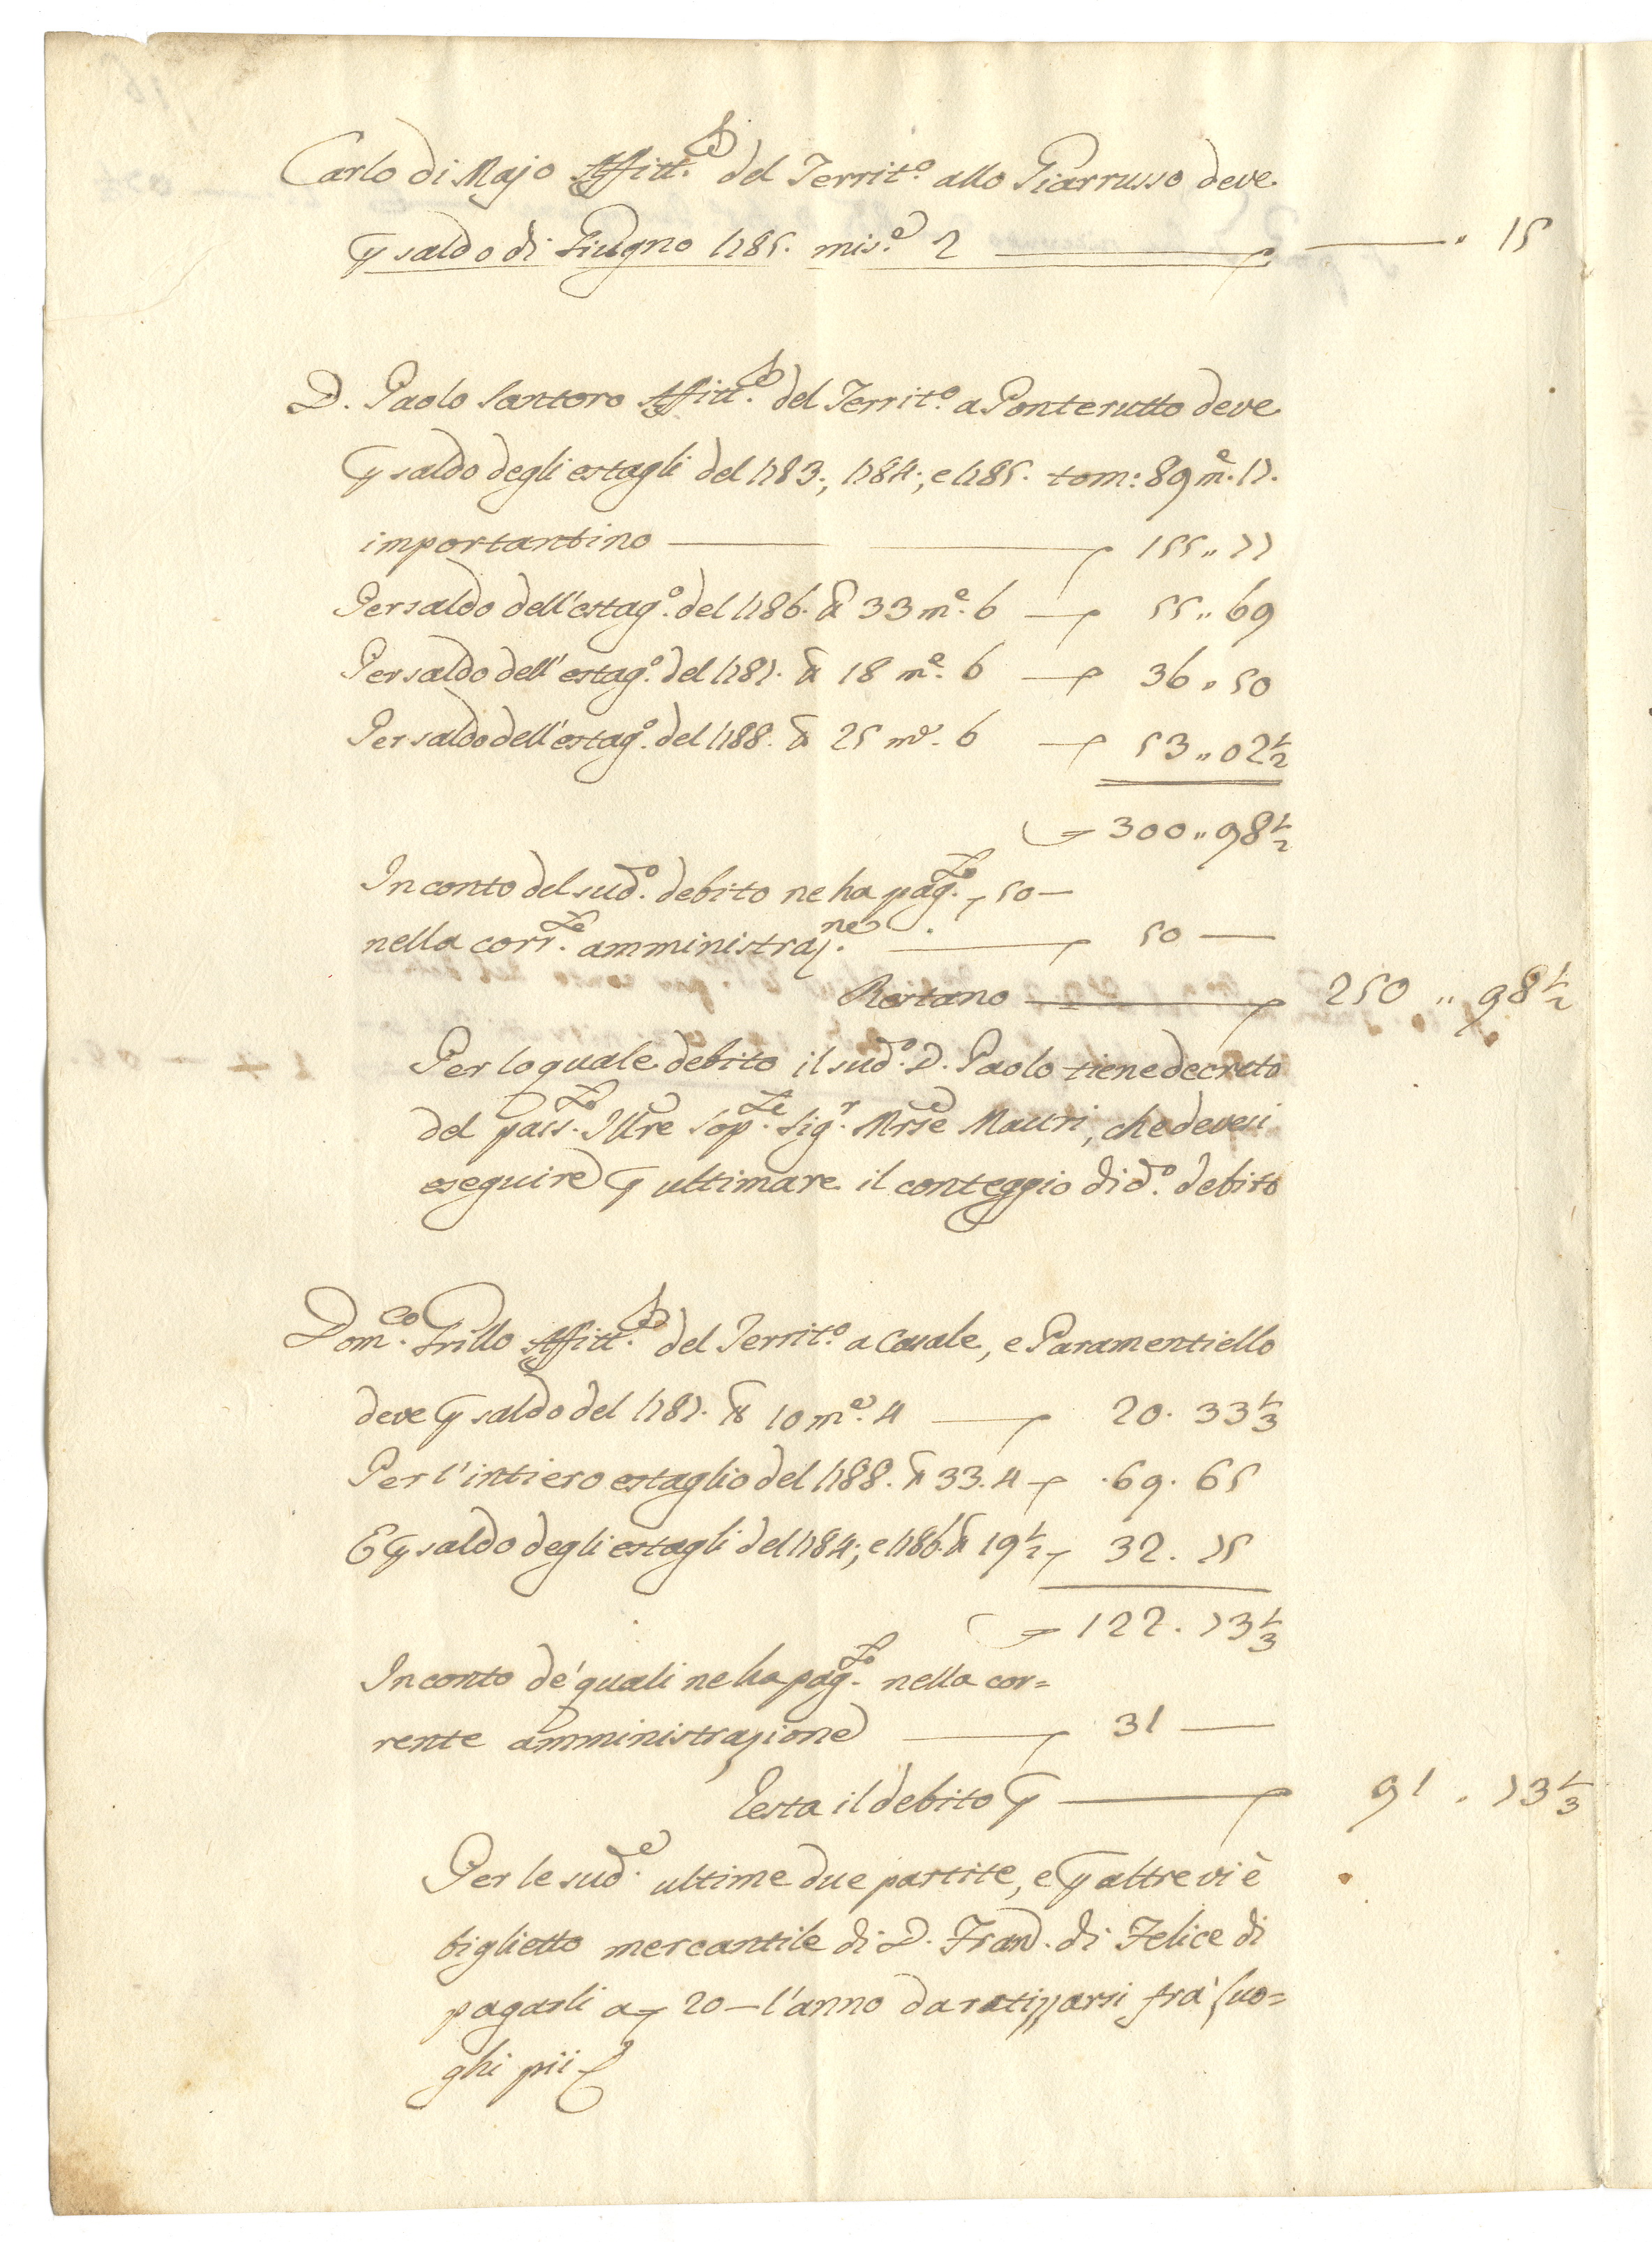 Carlo di Majo Affitt.e del Territ.o allo Piarrusso deve
p saldo di Giugno 1785. mis.e 2 — 15
D. Paolo Santoro Affitt.e del Territ.o a Ponterutto deve
p saldo degli estagli del 1783., 1784., e 1785. tom: 89 m.e 17.
importantino — 155 „ 77
Per saldo dell'estag.o del 1786. 33 m.e 6 — 55 „ 69
Per saldo dell'estag.o del 1787. 18 m.e 6 — 36 „ 50
Per saldo dell'estag.o del 1788. 25 m.e 6 — 53 „ 02 1/2
300 „ 98 1/2
In conto del sud.o debito ne ha pag.to 50 —
nella corr.te amministraz.ne — 50 —
Restano — 250 „ 98 1/2
Per lo quale debito il sud.o D. Paolo tiene decreto
del pass.to Ill're Sop.te Sig.r M'rse Mauri, che devesi
eseguire p ultimare il conteggio di d.o debito
Dom.co Grillo Affitt.e del Territ.o a Casale, e Paramentiello
deve p saldo del 1787. 10 m.e 4 — 20. 33 1/3
Per l'intiero estaglio del 1788. 33. 4 69. 65
E p saldo degli estagli del 1784; e 1786. 19 1/2 32. 75
122. 73 1/3
In conto de' quali ne ha pag.to nella cor=
rente amministrazione — 31 —
Resta il debito p — 91. 73 1/3
Per le sud.e ultime due partite, e p altre vi è
biglietto mercantile di D. Fran.co di Felice di
pagarli a 20 — l'anno da ratizzarsi frà luo=
ghi pii